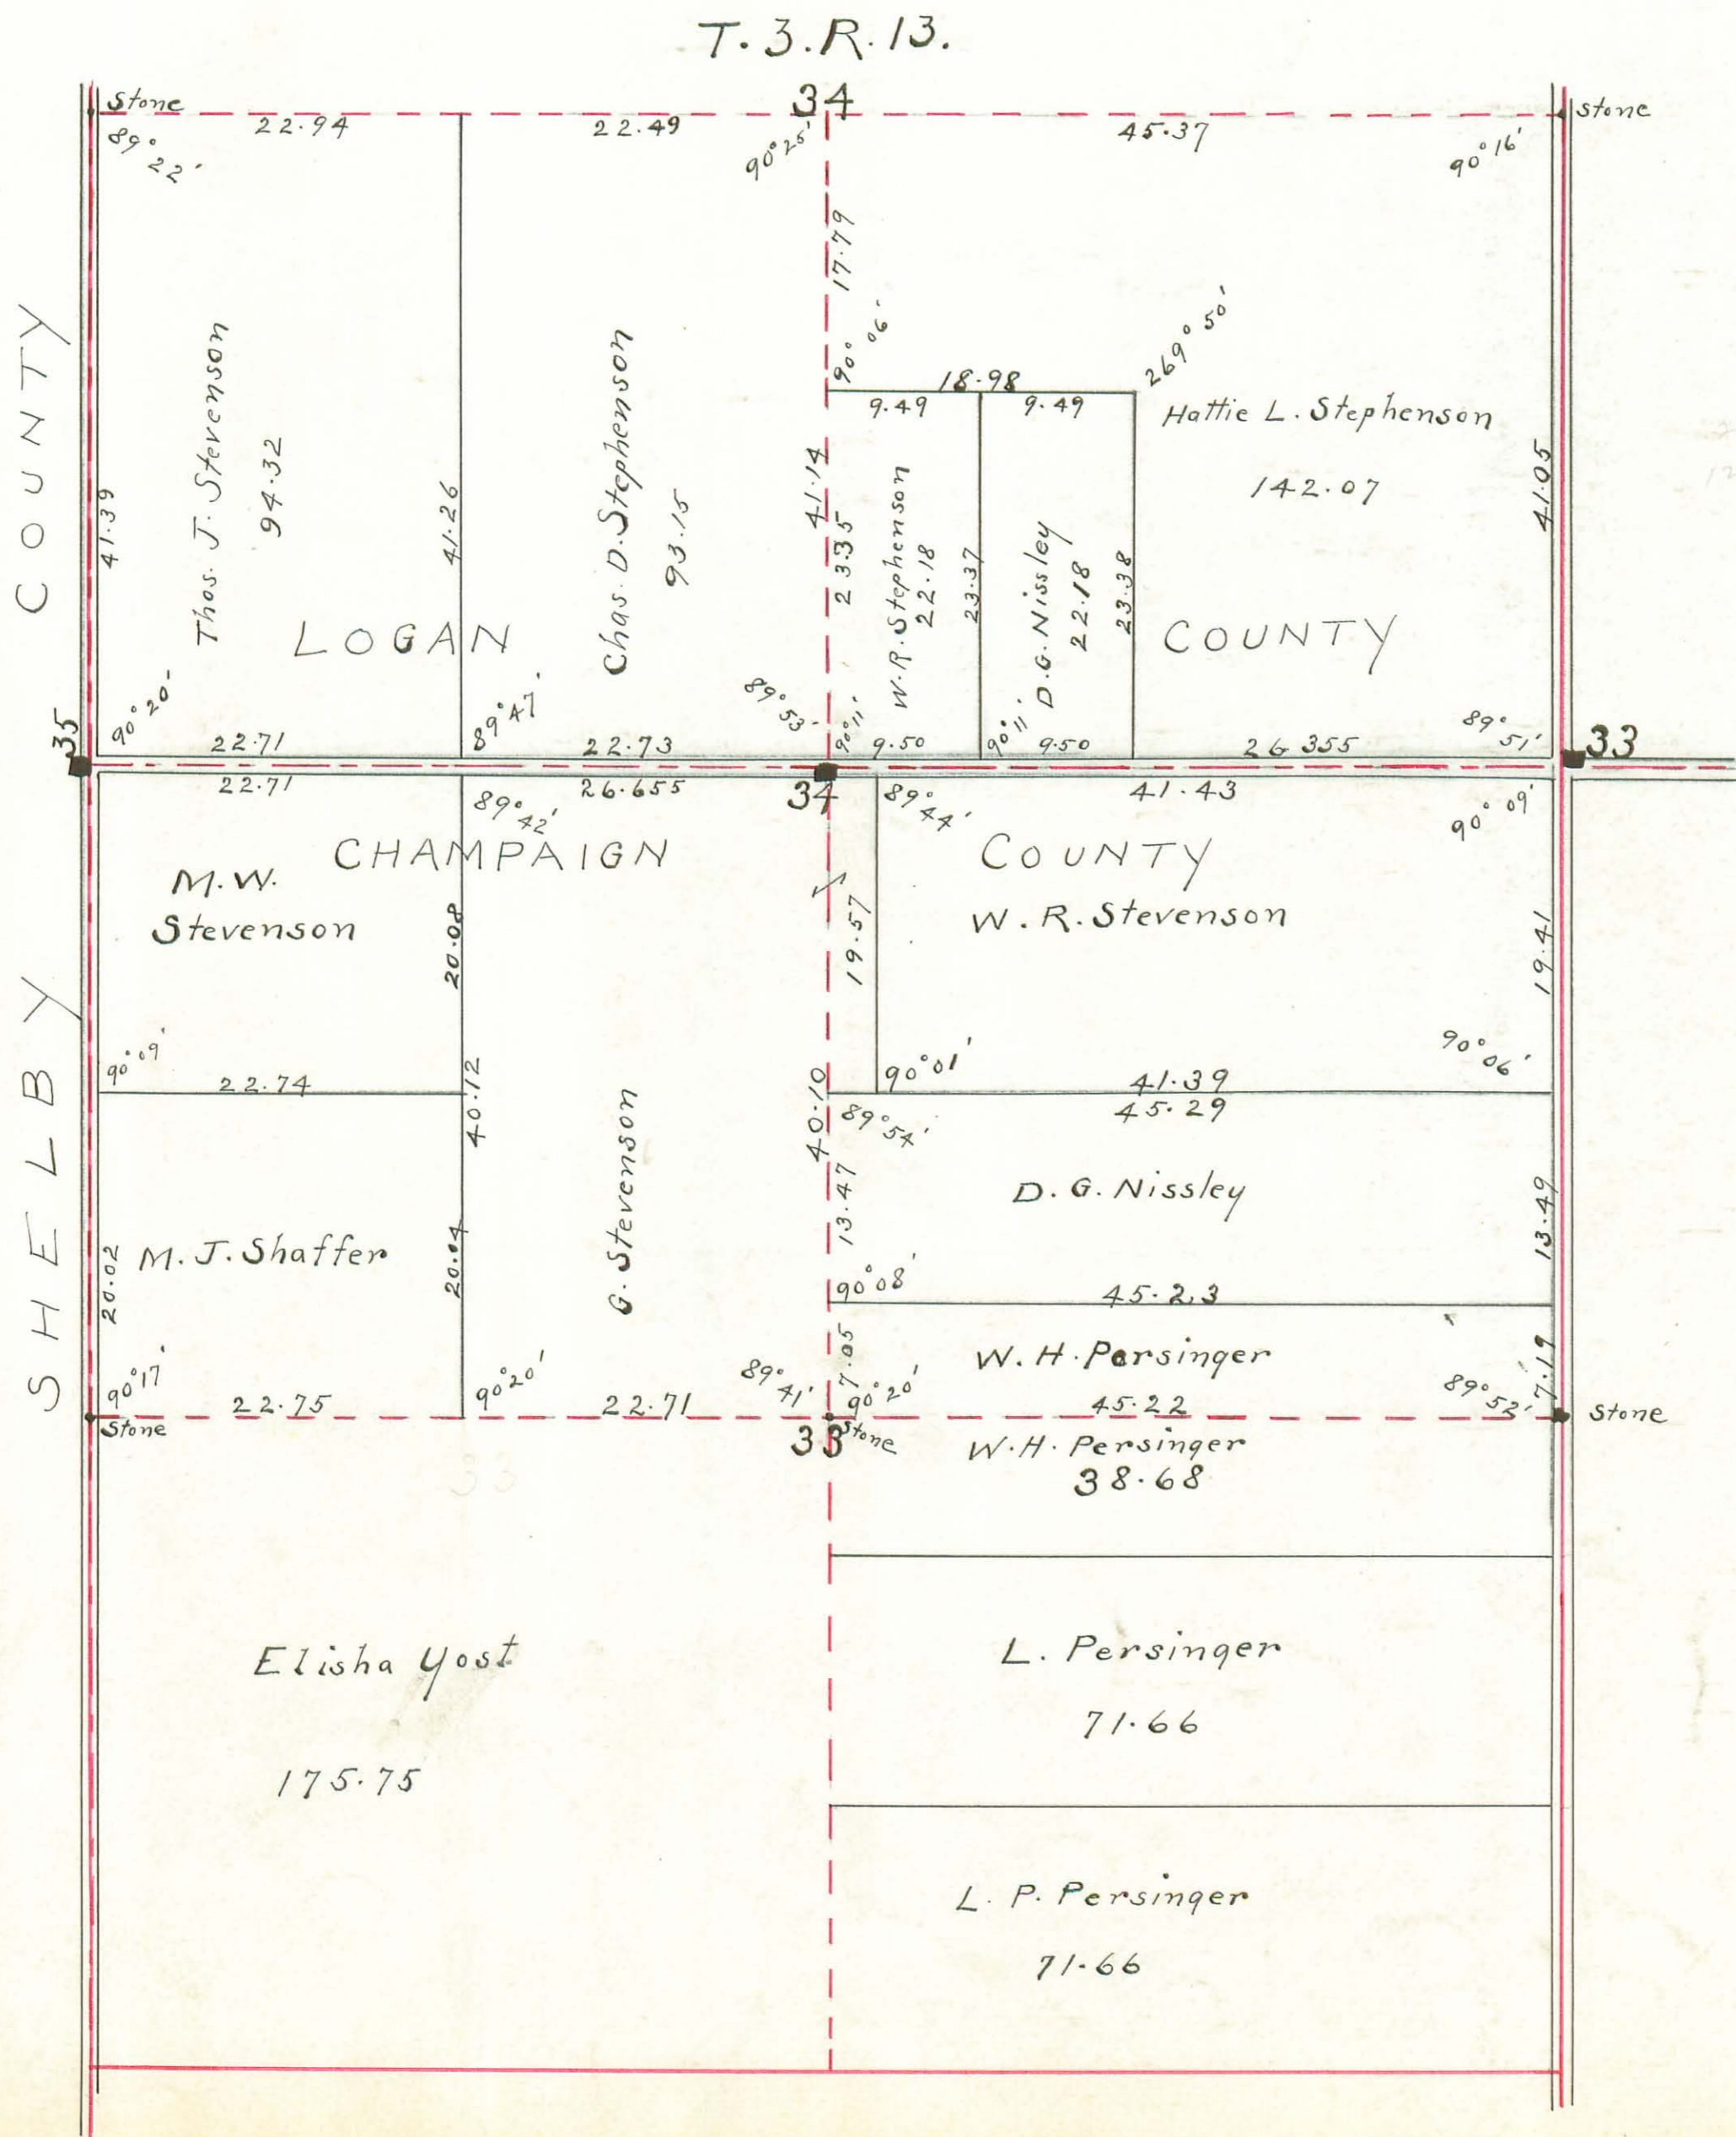 T. 3. R. 13.
34
Stone
22.94
22.49
45.37
Stone
89° 22'
90° 25'
90° 16'
17.79
90° 06'
18.98
269° 50'
9.49
9.49
Hattie L. Stephenson
142.07
COUNTY
41.39
Thos. J. Stevenson
94.32
41.26
Chas. D. Stephenson
93.15
41.14
23.35
W. R. Stephenson
22.18
23.37
D. G. Nissley
22.18
23.38
41.05
LOGAN
COUNTY
90° 20'
89° 47'
89° 53'
90° 11'
90° 11'
89° 51'
35
22.71
22.73
9.50
9.50
26.355
33
22.71
26.655
34
41.43
89° 42'
89° 44'
90° 09'
CHAMPAIGN
COUNTY
M. W.
Stevenson
W. R. Stevenson
20.08
19.57
19.41
SHELBY
90° 09'
22.74
40.12
90° 01'
41.39
90° 06'
40.10
89° 54'
45.29
13.47
D. G. Nissley
13.49
20.02
M. J. Shaffer
20.04
G. Stevenson
90° 08'
45.23
7.05
W. H. Persinger
7.19
90° 17'
22.75
90° 20'
22.71
89° 41'
90° 20'
45.22
89° 52'
Stone
33
Stone
Stone
W. H. Persinger
38.68
33
Elisha Yost
175.75
L. Persinger
71.66
L. P. Persinger
71.66